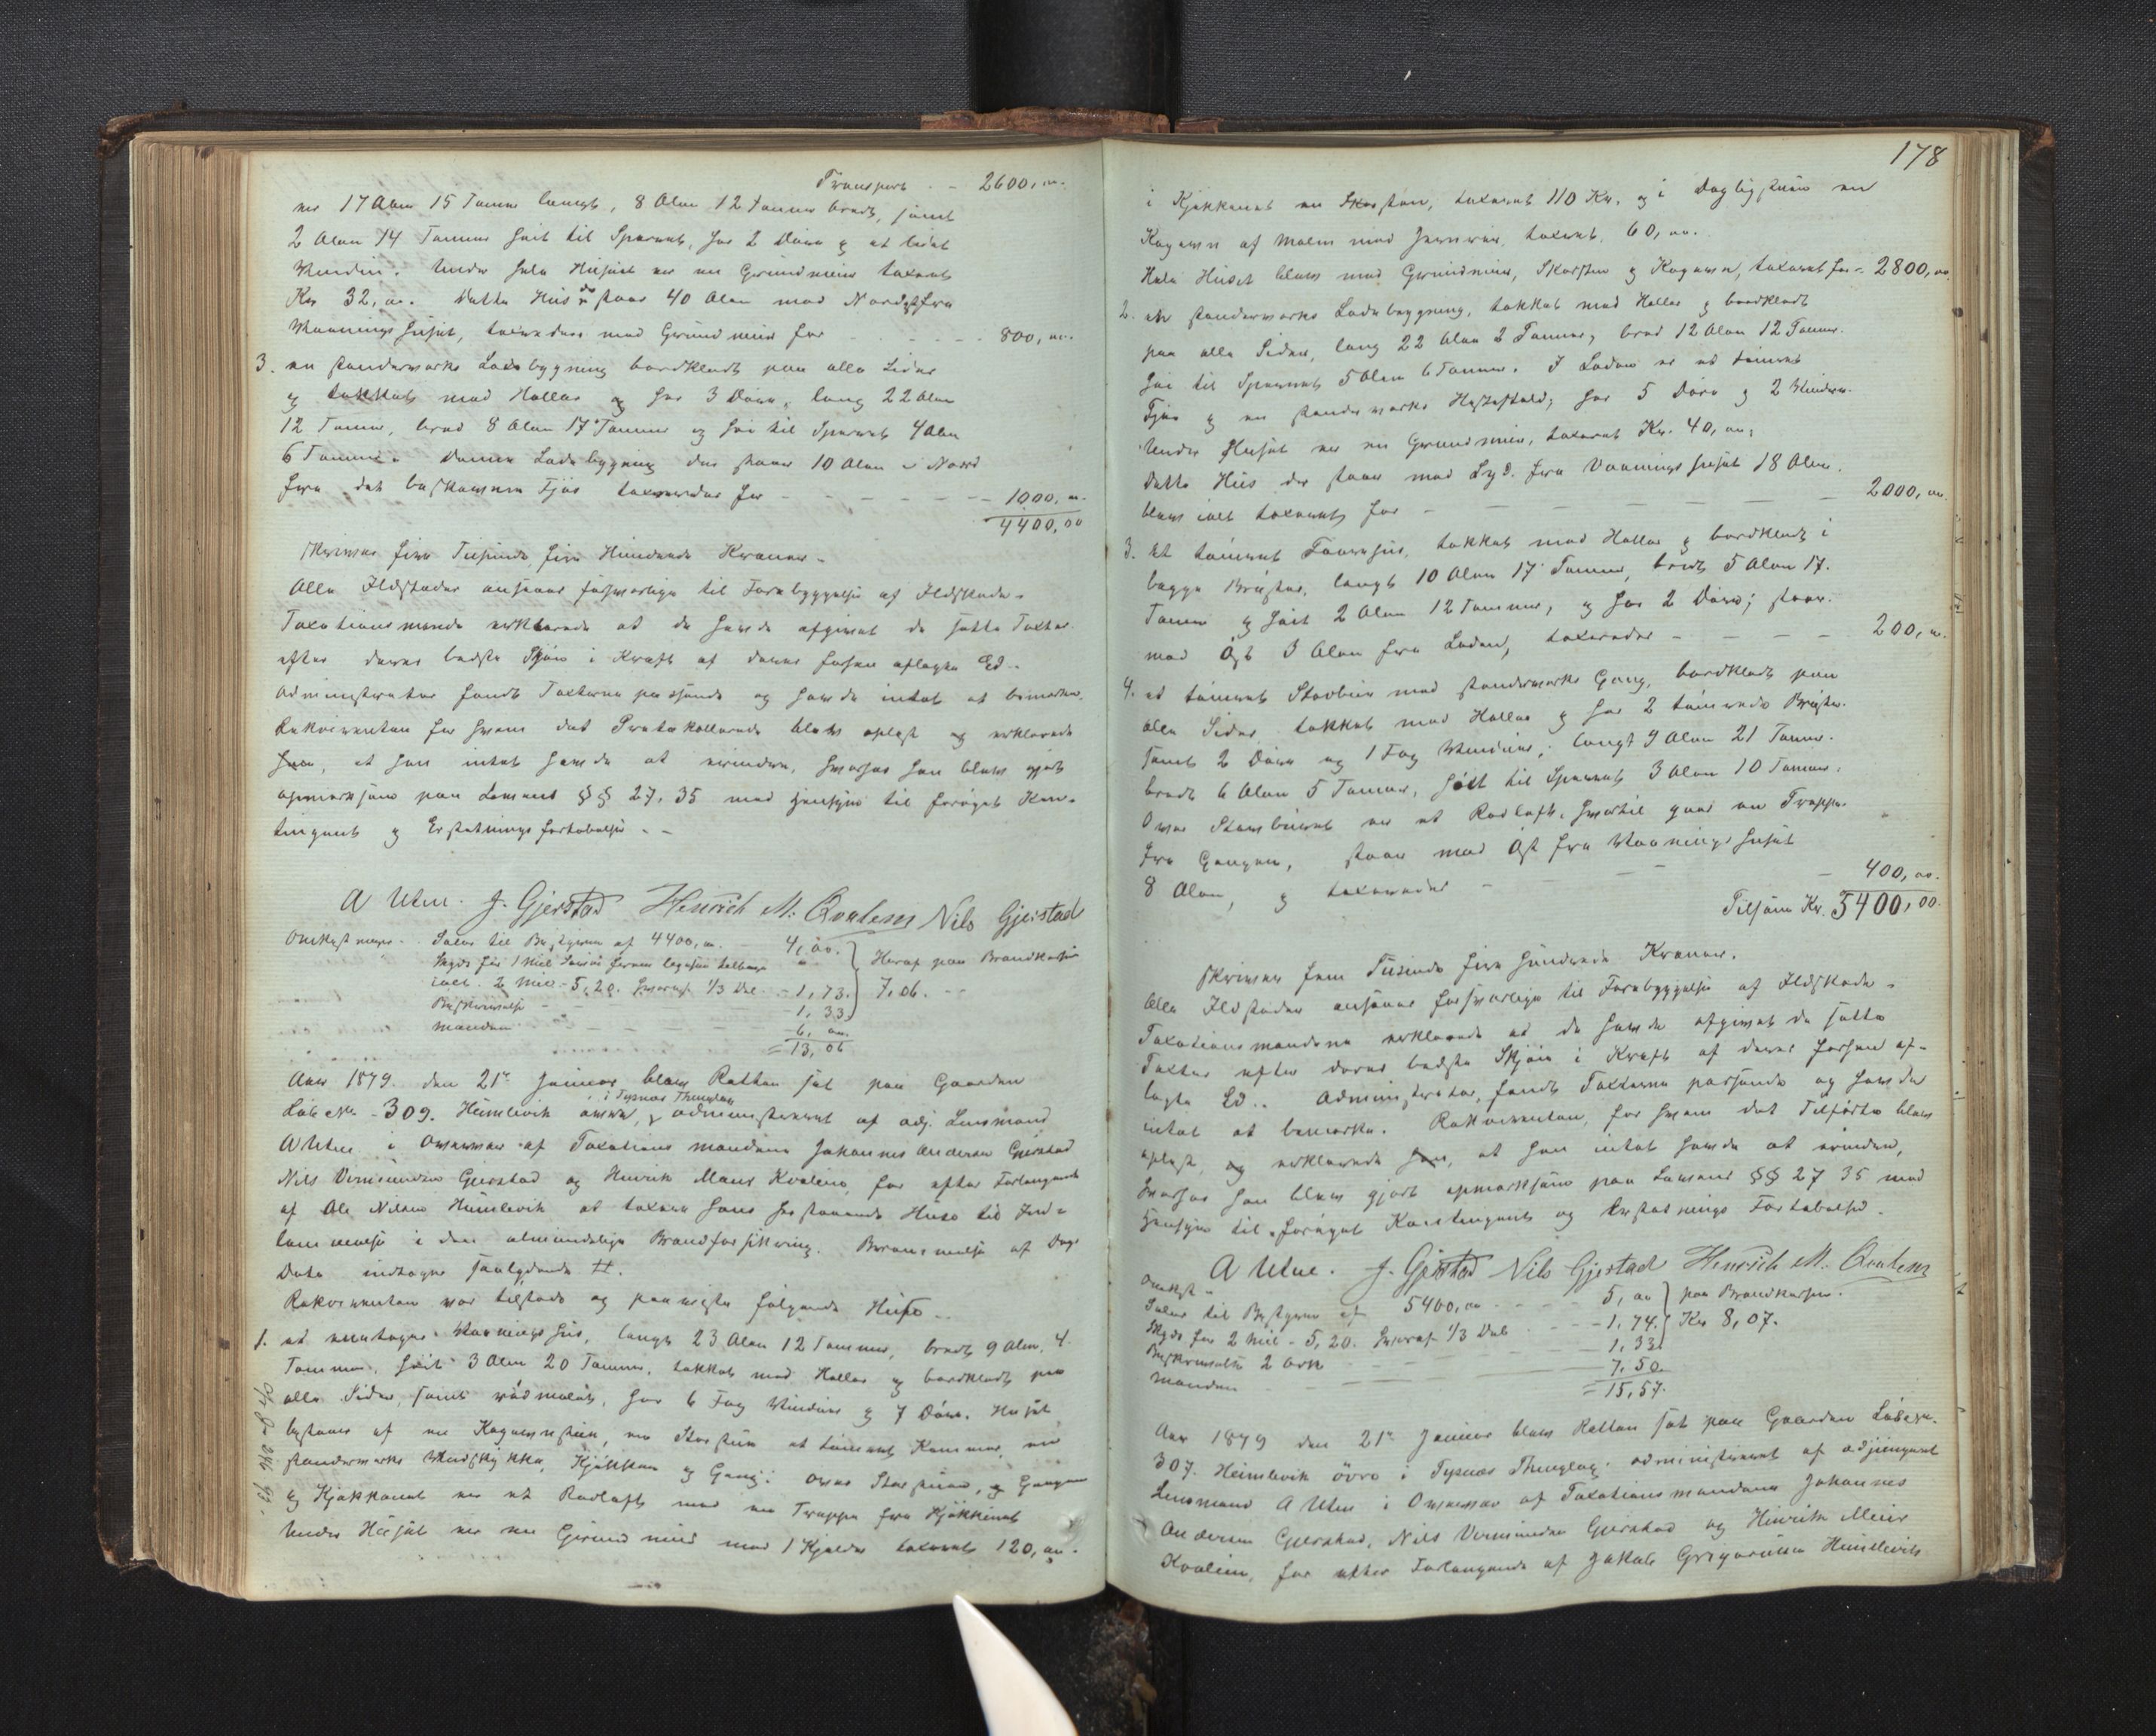 Transport . - 2600, oo.
er 17 Alen 15 Tommer langt, 8 Alen 12 Tommer bredt, samt
2 Alen 14 Tommer høit til Sperret, har 2 Døre & et lidet
Vindu. Under hele Huset er en Grundmuur taxeret
Kr 32, oo. Dette Hus der staar 40 Alen mod Nordost fra
Vaaningshuset, taxeredes med Grundmuur for - - - - 800, oo.
3. en standerværks Ladebygning bordklædt paa alle Sider
& tækket med Heller og har 3 Døre, lang 22 Alen
12 Tommer, bred 8 Alen 17 Tommer og høi til Sperret 4 Alen
6 Tommer. Denne Ladebygning der staar 10 Alen i Nord
fra det beskrevne Fjøs taxeredes for - - - - - - 1000, oo.
4400, 00
skriver fire Tusinde fire Hundrede Kroner.
Alle Ildsteder ansees forsvarlige til Forebyggelse af Ildskade.
Taxationsmænde erklærede at de havde afgivet de satte Taxter
efter deres bedste Skjøn i Kraft af deres forhen aflagte Ed.
Administrator fandt Taxterne passende og havde intet at bemærke.
Rekvirenten for hvem det Protokollerede blev oplæst og erklærede
han, at han intet havde at erindre, hvorhos han blev gjort
opmærksom paa Lovens §§ 27, 35 med Hensyn til forøget Kon-
tingent og Erstatnings fortabelse. -
A Utne. J. Gjerstad Henrich M: Qvalem Nils Gjerstad
Omkostninger. Salær til Bestyreren af 4400, oo. - 4, oo.
Heraf paa Brandkassen
ialt 2 Mil - 5,20. hvoraf 1/3 Del - 1, 73. 7,06. -
Beskrivelse - - 1, 33.
Mændene - - - 6, oo.
= 13, 06
Aar 1879. den 21de Januar blev Retten sat paa Gaarden
Løbe No - 309. Heimlevik øvre, i Tysnæs Thinglag & administreret af adj. Lensmand
A Utne i Overvær af Taxationsmændene Johannes Andersen Gjerstad
Nils Vermundsen Gjerstad og Henrik Meier Kvalem, for efter Forlangende
af Ole Nilsen Heimlevik at taxere hans paastaaende Huse til Ind-
lemmelse i den almindelige Brandforsikring. Berammelse af Dags
Dato indtages saalydende #.
Rekvirenten var tilstede og paaviste følgende Huse.
1. et eenetages Vaaningshus, langt 23 Alen 12 Tommer, bredt 9 Alen, 4.
Tommer, høit 3 Alen 20 Tommer, tækket med Heller og bordklædt paa
alle Sider, samt rødmalet, har 6 Fag Vinduer & 7 Døre. Huset
bestaar af en Kogeovnstue, en Storstue et tømret Kammer, en
standerværks Vedskykke, Kjøkken og Gang: over Storstuen, & Gangen
& Kjøkkenet er et Rodloft med en Trappe fra Kjøkkenet
Under Huset er en Grundmuur med 1 Kjelder taxeret 120, oo.
178
i Kjøkkenet en Skorsten, taxeret 110 Kr. og i Dagligstuen en
Kogeovn af Malm med Jernrør, taxeret 60, oo.
Hele Huset blev med Grundmuur, Skorsten & Kogeovn, taxeret for - 2800, oo
2. en standerværks Ladebygning, tækket med Heller & bordklædt
paa alle Sider, lang 22 Alen 2 Tommer, bred 12 Alen 12 Tommer.
høi til Sperret 5 Alen 6 Tommer. I Laden er et tømret
Fjøs & en standerværks Hestestald; har 5 Døre & 2 Vinduer.
Under Huset er en Grundmuur, taxeret Kr. 40, oo,
Dette Hus der staar mod Syd. fra Vaaningshuset 18 Alen.
blev ialt taxeret for - - - - - 2000, oo.
3. et tømret Faarehus, tækket med Heller & bordklædt i
begge Brøster, langt 10 Alen 17 Tommer, bredt 5 Alen 17.
Tommer & høit 2 Alen 12 Tommer, og har 2 Døre; staar
mod Øst 3 Alen fra Laden, taxeredes - - - - 200, oo.
4. et tømret Stavbur med standerværks Gang, bordklædt paa
alle Sider tækket med Heller & har 2 tømrede Brøster
samt 2 Døre og 1 Fag Vinduer; langt 9 Alen 21 Tommer.
bredt 6 Alen 5 Tommer, høit til Sperret 3 Alen 10 Tommer.
Over Stavburet er et Rodloft, hvortil gaar en Trappe
fra Gangen, staar mod Øst fra Vaaningshuset
8 Alen, & taxeredes - - - 400, oo.
Tilsam Kr. 5400, 00.
skriver fem Tusinde fire hundrede Kroner.
Alle Ildsteder ansees forsvarlige til Forebyggelse af Ildskade.
Taxationsmændene erklærede at de havde afgivet de satte
Taxter efter deres bedste Skjøn i Kraft af deres forhen af-
lagte Ed.. Administrator, fandt Taxterne passende og havde
intet at bemærke. Rekvirenten, for hvem det Tilførte blev
oplæst, og erklærede han, at han intet havde at erindre,
hvorhos han blev gjort opmærksom paa Lovens §§ 27 35 med
Hensyn til forøget Kontingent og Erstatnings Fortabelse.
A Utne. J. Gjerstad Nils Gjerstad Henrich M. Qvalem
Omkost.
Salær til Bestyreren af 5400, oo - - - 5, oo paa Brandkassen.
Skyds for 2 Mil - 5,20. hvoraf 1/3 Del - - 1,74. Kr 8,07.
Beskrivelse 2 Ark - - 1, 33.
Mændene - - - 7, 50.
= 15,57.
Aar 1879 den 21de Januar blev Retten sat paa Gaarden Løbe No.
307. Heimlevik øvre i Tysnæs Thinglag. administreret af adjungeret
Lensmand A Utne i Overvær af Taxationsmændene Johannes
Andersen Gjerstad, Nils Vermundsen Gjerstad og Henrik Meier
Kvalem, for efter Forlangende af Jakob Grigoriusen Heimlevik